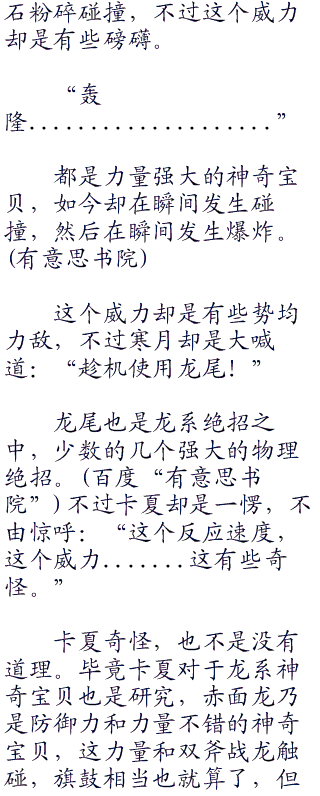 石粉碎碰撞，不过这个威力
却是有些磅礴。
“轰
隆....................”
都是力量强大的神奇宝
贝，如今却在瞬间发生碰
撞，然后在瞬间发生爆炸。
(有意思书院)
这个威力却是有些势均
力敌，不过寒月却是大喊
道：“趁机使用龙尾！”
龙尾也是龙系绝招之
中，少数的几个强大的物理
绝招。(百度“有意思书
院”)不过卡夏却是一愣，不
由惊呼：“这个反应速度，
这个威力.......这有些奇
怪。”
卡夏奇怪，也不是没有
道理。毕竟卡夏对于龙系神
奇宝贝也是研究，赤面龙乃
是防御力和力量不错的神奇
宝贝，这力量和双斧战龙触
碰，旗鼓相当也就算了，但